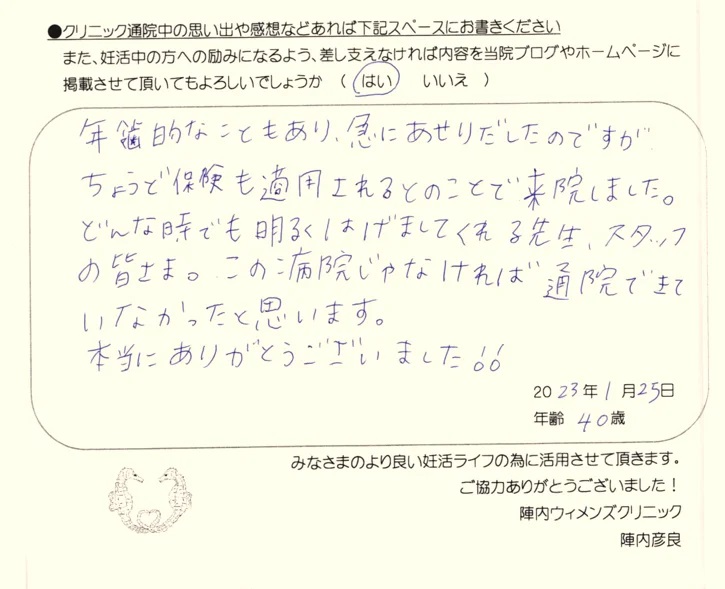 ●クリニック通院中の思い出や感想などあれば下記スペースにお書きください
また、妊活中の方への励みになるよう、差し支えなければ内容を当院ブログやホームページに
掲載させて頂いてもよろしいでしょうか （ はい いいえ ）
年歯的なこともあり、急にあせりだしたのですが
ちょうど保険も適用されるとのことで来院しました。
どんな時でも明るくはげましてくれる先生、スタッフ
の皆さま。この病院じゃなければ通院できて
いなかったと思います。
本当にありがとうございました!!
2023年1月25日
年齢 40歳
みなさまのより良い妊活ライフの為に活用させて頂きます。
ご協力ありがとうございました！
陣内ウィメンズクリニック
陣内彦良